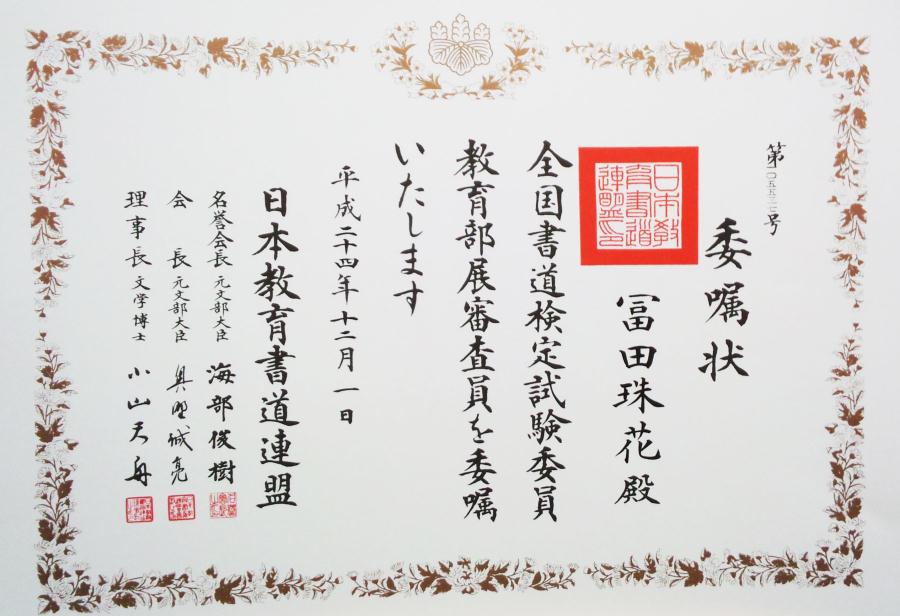 第〇五五三二号
委嘱状
冨田珠花殿
日本教育書道連盟印
全国書道検定試験委員
教育部展審査員を委嘱
いたします
平成二十四年十二月一日
日本教育書道連盟
名誉会長 元文部大臣 海部俊樹
会長 元文部大臣 奥野誠亮
理事長 文学博士 小山天舟